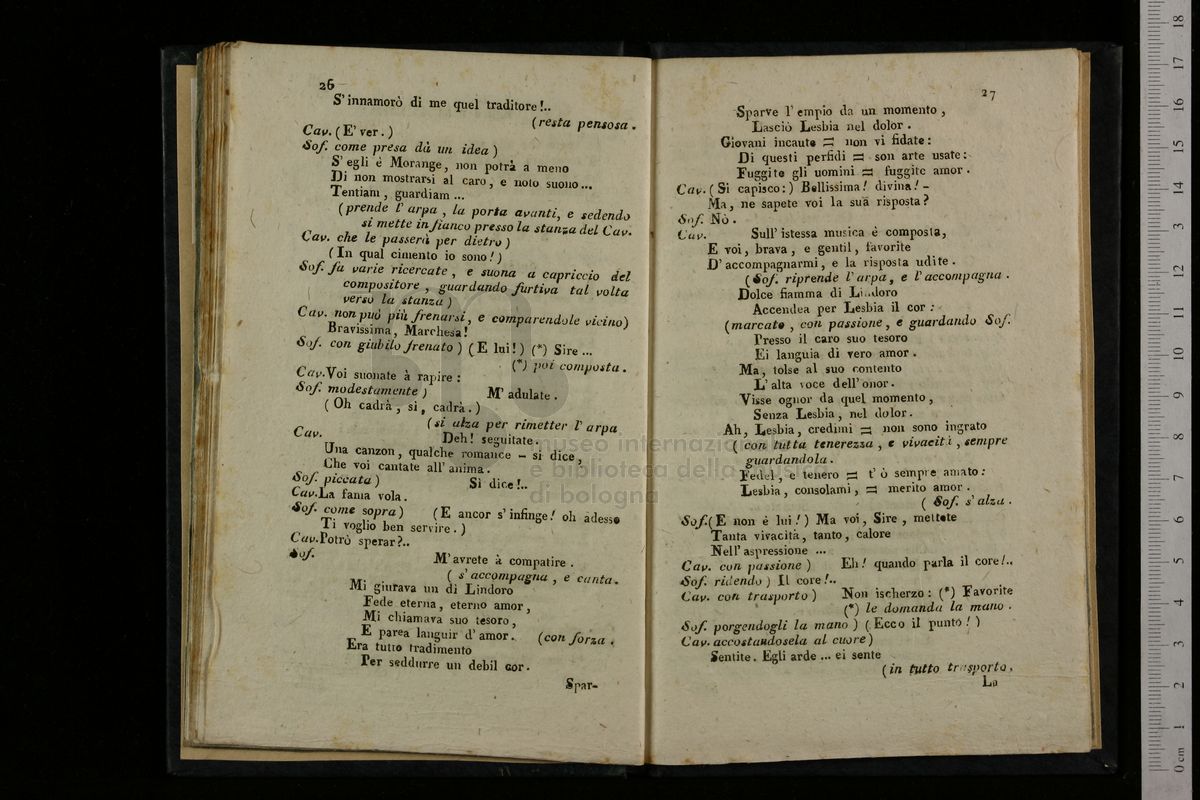 26
S' innamorò di me quel traditore!..
(resta pensosa.
Cav. (E' ver.)
Sof. come presa dà un idea)
S' egli è Morange, non potrà a meno
Di non mostrarsi al caro, e noto suono...
Tentiam, guardiam ...
(prende l' arpa, la porta avanti, e sedendo
si mette in fianco presso la stanza del Cav.
Cav. che le passerà per dietro)
(In qual cimento io sono!)
Sof. fa varie ricercate, e suona a capriccio del
compositore, guardando furtiva tal volta
verso la stanza)
Cav. non può più frenarsi, e comparendole vicino)
Bravissima, Marchesa!
Sof. con giubilo frenato) (E lui!) (*) Sire ...
(*) poi composta.
Cav. Voi suonate à rapire:
Sof. modestamente) M' adulate.
(Oh cadrà, si, cadrà.)
(si alza per rimetter l' arpa
Cav. Deh! seguitate.
Una canzon, qualche romance - si dice,
Che voi cantate all' anima.
Sof. piccata) Si dice!..
Cav. La fama vola.
Sof. come sopra) (E ancor s' infinge! oh adesso
Ti voglio ben servire.)
Cav. Potrò sperar?..
Sof. M' avrete à compatire.
(s' accompagna, e canta.
Mi giurava un dì Lindoro
Fede eterna, eterno amor,
Mi chiamava suo tesoro,
E parea languir d' amor. (con forza.
Era tutto tradimento
Per seddurre un debil cor.
Spar-
27
Sparve l' empio da un momento,
Lasciò Lesbia nel dolor.
Giovani incaute = non vi fidate:
Di questi perfidi = son arte usate:
Fuggite gli uomini = fuggite amor.
Cav. (Si capisco:) Bellissima! divina! -
Ma, ne sapete voi la suà risposta?
Sof. Nò.
Cav. Sull' istessa musica è composta,
E voi, brava, e gentil, favorite
D' accompagnarmi, e la risposta udite.
(Sof. riprende l' arpa, e l' accompagna.
Dolce fiamma di Lindoro
Accendea per Lesbia il cor:
(marcato, con passione, e guardando Sof.
Presso il caro suo tesoro
Ei languia di vero amor.
Ma, tolse al suo contento
L' alta voce dell' onor.
Visse ognor da quel momento,
Senza Lesbia, nel dolor.
Ah, Lesbia, credimi = non sono ingrato
(con tutta tenerezza, e vivacità, sempre
guardandola.
Fedel, e tenero = t' ò sempre amato:
Lesbia, consolami, = merito amor.
(Sof. s' alza.
Sof. (E non è lui!) Ma voi, Sire, mettete
Tanta vivacità, tanto, calore
Nell' aspressione ...
Cav. con passione) Eh! quando parla il core!..
Sof. ridendo) Il core!..
Cav. con trasporto) Non ischerzo: (*) Favorite
(*) le domanda la mano.
Sof. porgendogli la mano) (Ecco il punto!)
Cav. accostandosela al cuore)
Sentite. Egli arde ... ei sente
(in tutto trasporto,
La
museo internazionale
e biblioteca della musica
di bologna
18
17
16
15
14
13
12
11
10
9
8
7
6
5
4
3
2
1
0 cm